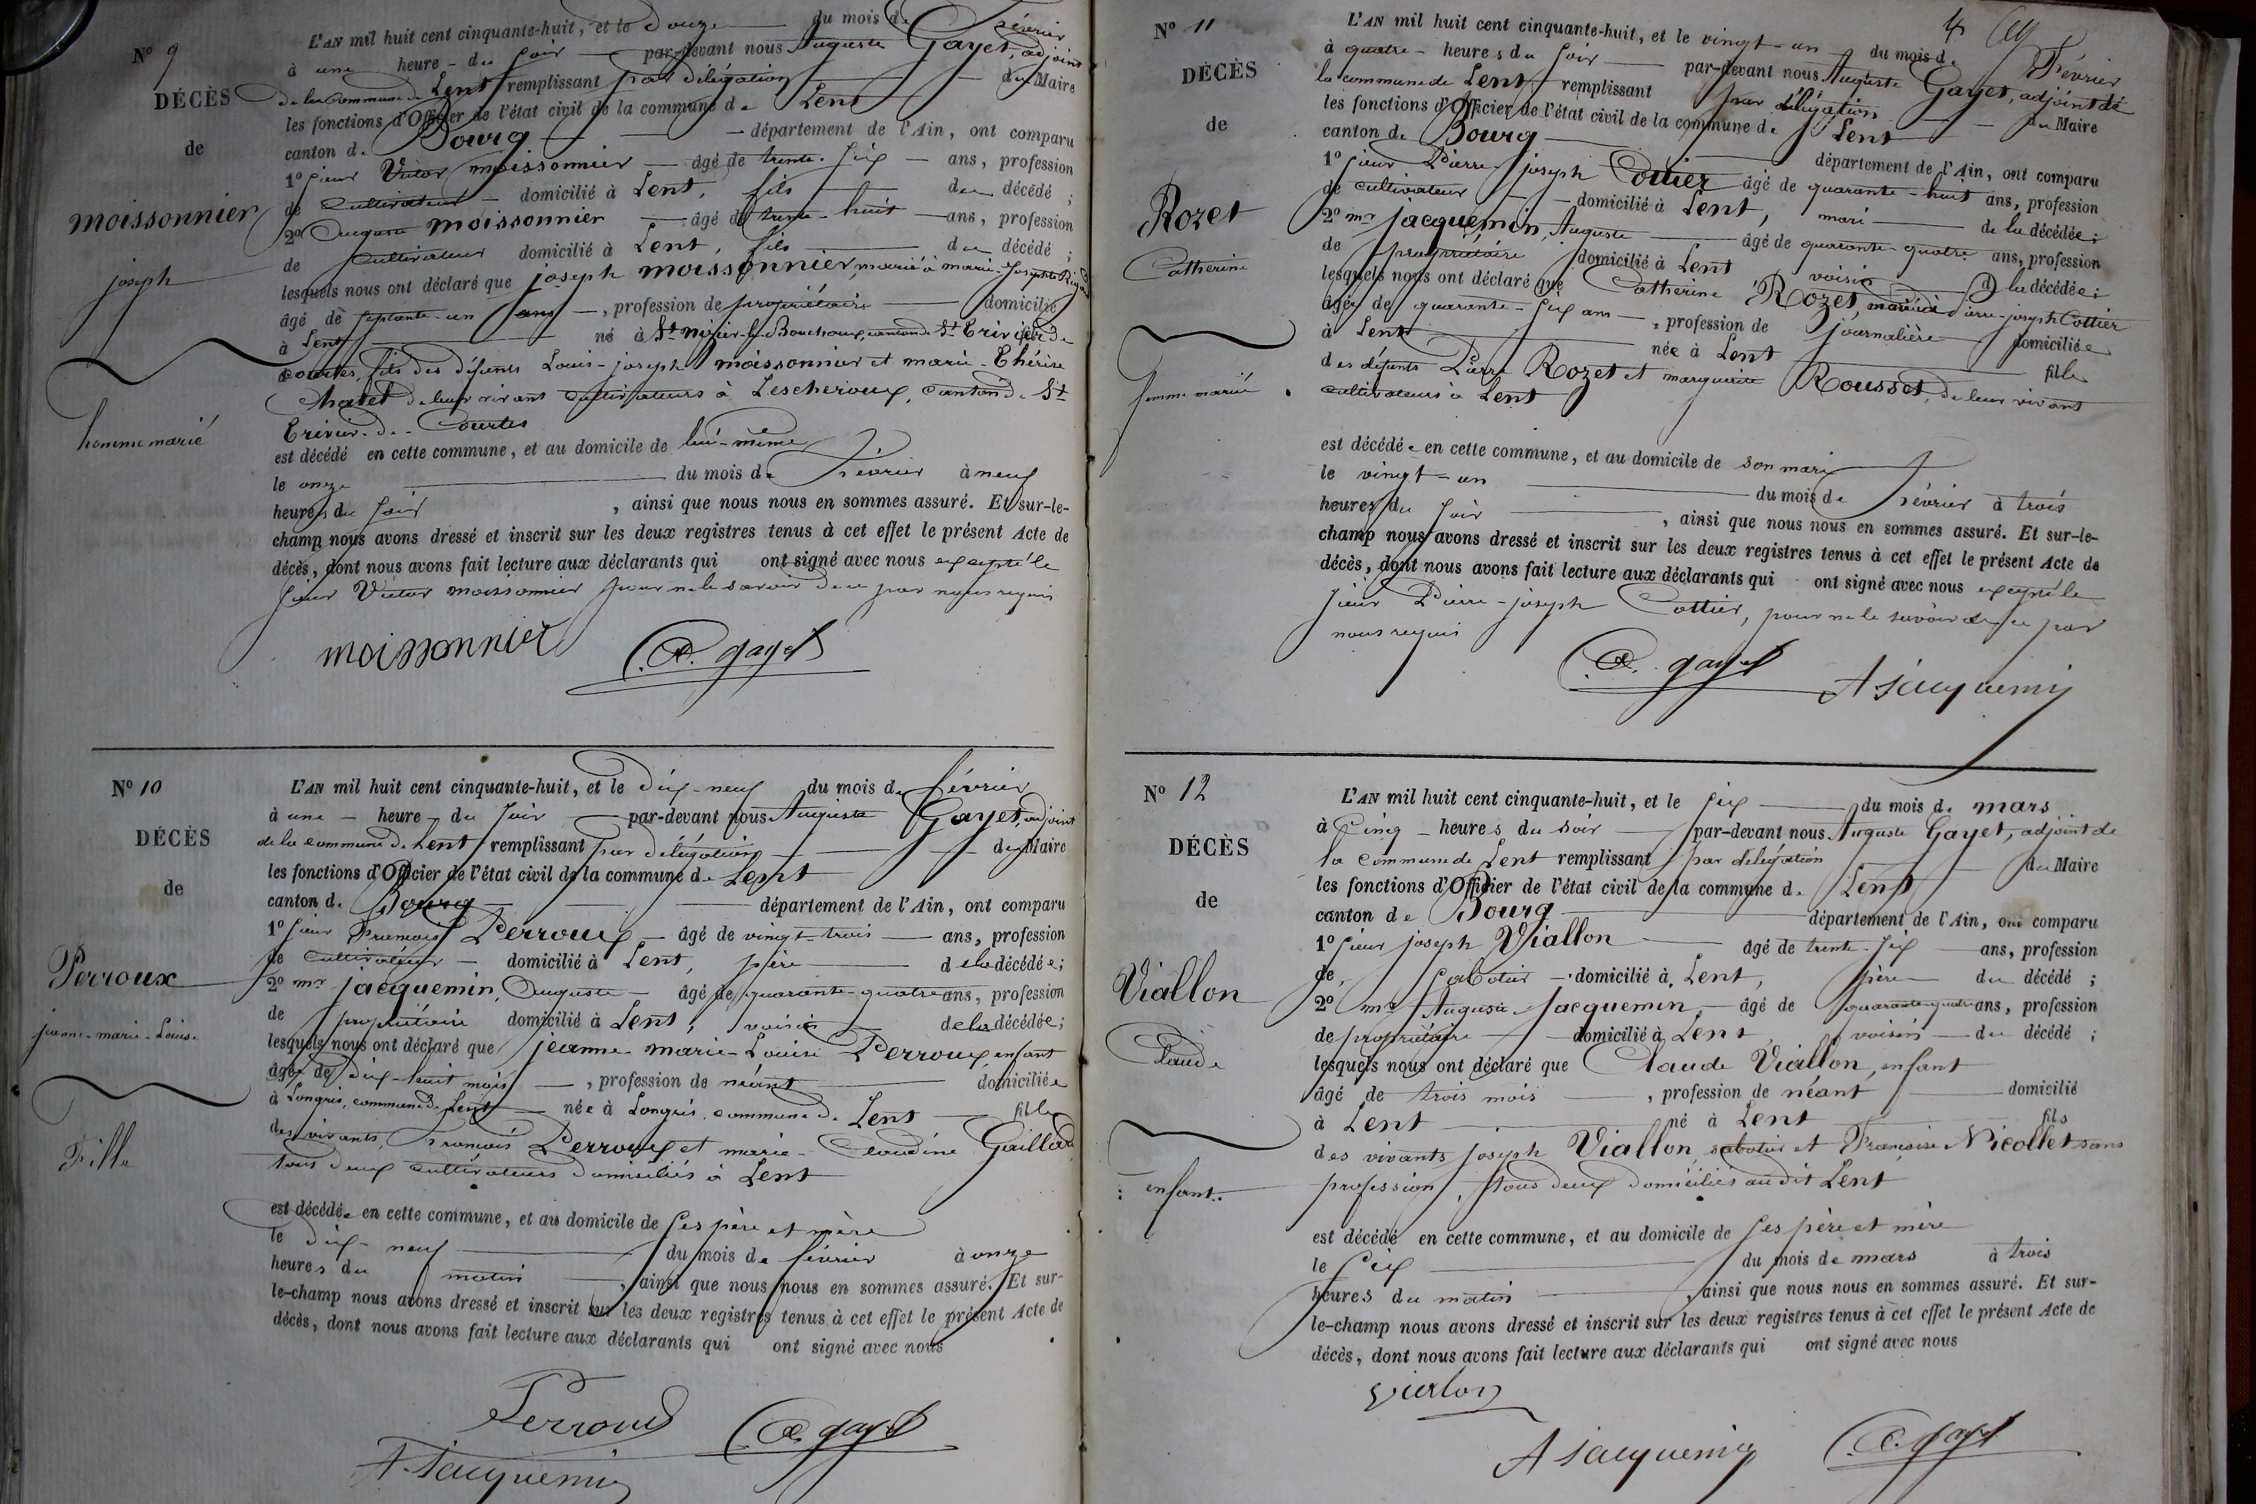 N° 9
DÉCÈS
de
moissonnier
joseph
homme marié
L'AN mil huit cent cinquante-huit, et le douze du mois de Février
à une heure du soir par-devant nous Auguste Gayet, adjoint
de la commune de Lent remplissant par délégation du Maire
les fonctions d'Officier de l'état civil de la commune de Lent
canton de Bourg département de l'Ain, ont comparu
1° sieur Victor moissonnier âgé de trente-six ans, profession
de cultivateur domicilié à Lent, fils du décédé ;
2° Auguste moissonnier âgé de trente-huit ans, profession
de cultivateur domicilié à Lent, fils du décédé ;
lesquels nous ont déclaré que joseph moissonnier, marié à marie-Josephte
âgé de septante-un ans, profession de propriétaire domicilié
à Lent né à St nizier-le-Bouchoux, canton de St Trivier de
courtes, fils des défunts Louis-joseph moissonnier et marie-Thérèse
Chatet de leur vivant cultivateurs à Lescheroux, canton de St
Trivier-de-Courtes
est décédé en cette commune, et au domicile de lui-même
le onze du mois de Février à neuf
heures du soir, ainsi que nous nous en sommes assuré. Et sur-le-
champ nous avons dressé et inscrit sur les deux registres tenus à cet effet le présent Acte de
décès, dont nous avons fait lecture aux déclarants qui ont signé avec nous excepté le
sieur Victor moissonnier pour ne le savoir de ce par nous requis
moissonnier A. gayet
N° 10
DÉCÈS
de
Perroux
jeanne-marie-Louise
Fille
L'AN mil huit cent cinquante-huit, et le dix-neuf du mois de février
à une heure du soir par-devant nous Auguste Gayet, adjoint
de la commune de Lent remplissant par délégation du Maire
les fonctions d'Officier de l'état civil de la commune de Lent
canton de Bourg département de l'Ain, ont comparu
1° sieur François Perroux âgé de vingt-trois ans, profession
de cultivateur domicilié à Lent, père de la décédée ;
2° mr jacquemin, Auguste âgé de quarante-quatre ans, profession
de propriétaire domicilié à Lent, voisin de la décédée ;
lesquels nous ont déclaré que jeanne-marie-Louise Perroux enfant
âgée de dix-huit mois, profession de néant domiciliée
à Longris, commune de Lent née à Longris, commune de Lent fille
des vivants François Perroux et marie-Claudine Gaillard
tous deux cultivateurs domiciliés à Lent
est décédée en cette commune, et au domicile de ses père et mère
le dix-neuf du mois de février à onze
heures du matin, ainsi que nous nous en sommes assuré. Et sur-
le-champ nous avons dressé et inscrit sur les deux registres tenus à cet effet le présent Acte de
décès, dont nous avons fait lecture aux déclarants qui ont signé avec nous
Perroud A. gayet
A Jacquemin
4
N° 11
DÉCÈS
de
Rozet
Catherine
femme mariée
L'AN mil huit cent cinquante-huit, et le vingt-un du mois de Février
à quatre heures du soir par-devant nous Auguste Gayet, adjoint de
la commune de Lent remplissant par délégation du Maire
les fonctions d'Officier de l'état civil de la commune de Lent
canton de Bourg département de l'Ain, ont comparu
1° sieur Pierre-joseph Cottier âgé de quarante-huit ans, profession
de cultivateur domicilié à Lent, mari de la décédée ;
2° mr jacquemin, Auguste âgé de quarante-quatre ans, profession
de propriétaire domicilié à Lent voisin de la décédée ;
lesquels nous ont déclaré que Catherine Rozet, mariée à Pierre-joseph Cottier
âgée de quarante-six ans, profession de journalière domiciliée
à Lent née à Lent fille
des défunts Pierre Rozet et marguerite Rousset, de leur vivant
cultivateurs à Lent
est décédée en cette commune, et au domicile de son mari
le vingt-un du mois de Février à trois
heures du soir, ainsi que nous nous en sommes assuré. Et sur-le-
champ nous avons dressé et inscrit sur les deux registres tenus à cet effet le présent Acte de
décès, dont nous avons fait lecture aux déclarants qui ont signé avec nous excepté le
sieur Pierre-joseph Cottier, pour ne le savoir de ce par
nous requis
A. gayet A Jacquemin
N° 12
DÉCÈS
de
Viallon
Claude
enfant
L'AN mil huit cent cinquante-huit, et le six du mois de mars
à cinq heures du soir par-devant nous Auguste Gayet, adjoint de
la commune de Lent remplissant par délégation du Maire
les fonctions d'Officier de l'état civil de la commune de Lent
canton de Bourg département de l'Ain, ont comparu
1° sieur joseph Viallon âgé de trente-six ans, profession
de sabotier domicilié à Lent, père du décédé ;
2° mr Auguste Jacquemin âgé de quarante-quatre ans, profession
de propriétaire domicilié à Lent, voisin du décédé ;
lesquels nous ont déclaré que Claude Viallon, enfant
âgé de trois mois, profession de néant domicilié
à Lent né à Lent fils
des vivants joseph Viallon, sabotier et Françoise Nicollet sans
profession, tous deux domiciliés audit Lent
est décédé en cette commune, et au domicile de ses père et mère
le six du mois de mars à trois
heures du matin, ainsi que nous nous en sommes assuré. Et sur-
le-champ nous avons dressé et inscrit sur les deux registres tenus à cet effet le présent Acte de
décès, dont nous avons fait lecture aux déclarants qui ont signé avec nous
vialon
A Jacquemin A. gayet